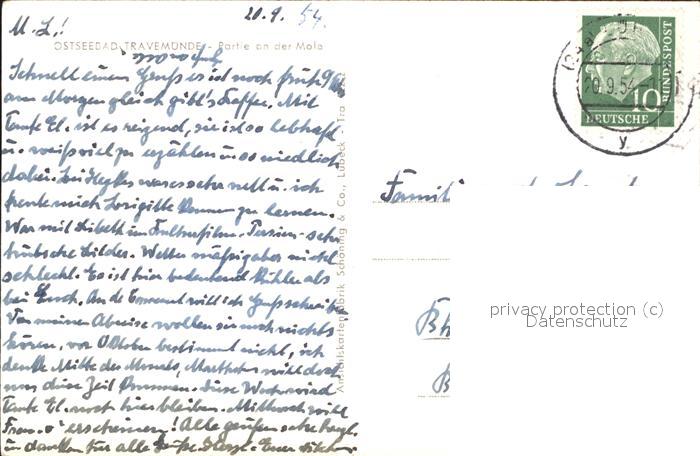 20.9.54.
M. L.!
OSTSEEBAD TRAVEMÜNDE - Partie an der Mole
Schnell einen Gruß es ist noch früh 9
am Morgen gleich gibt's Kaffee. Mit
Tante El. ist es reizend, sie ist so lebhaft
u. weiß viel zu erzählen u. so niedlich
dabei. Bei war es sehr nett u. ich
freute mich Brigitte kennen zu lernen.
War mit Lisbeth im Kulturfilm. Persien - sehr
hübsche Bilder. Wetter mäßig aber nicht
schlecht. Es ist hier bedeutend kühler als
bei Euch. An will ich Gruß schreiben
Von meiner Abreise wollen sie noch nichts
hören, vor Oktober bestimmt nicht, ich
denke Mitte des Monats, will doch
um diese Zeit kommen. Diese Woche wird
Tante El. noch hier bleiben. Mittwoch will
Frau erscheinen! Alle grüßen sehr herzl.
u. danken für alle Grüße. Herzl. Eure
Ansichtskartenfabrik Schöning & Co., Lübeck
DEUTSCHE BUNDESPOST
10
20.9.54
y
Famili
privacy protection (c)
Datenschutz